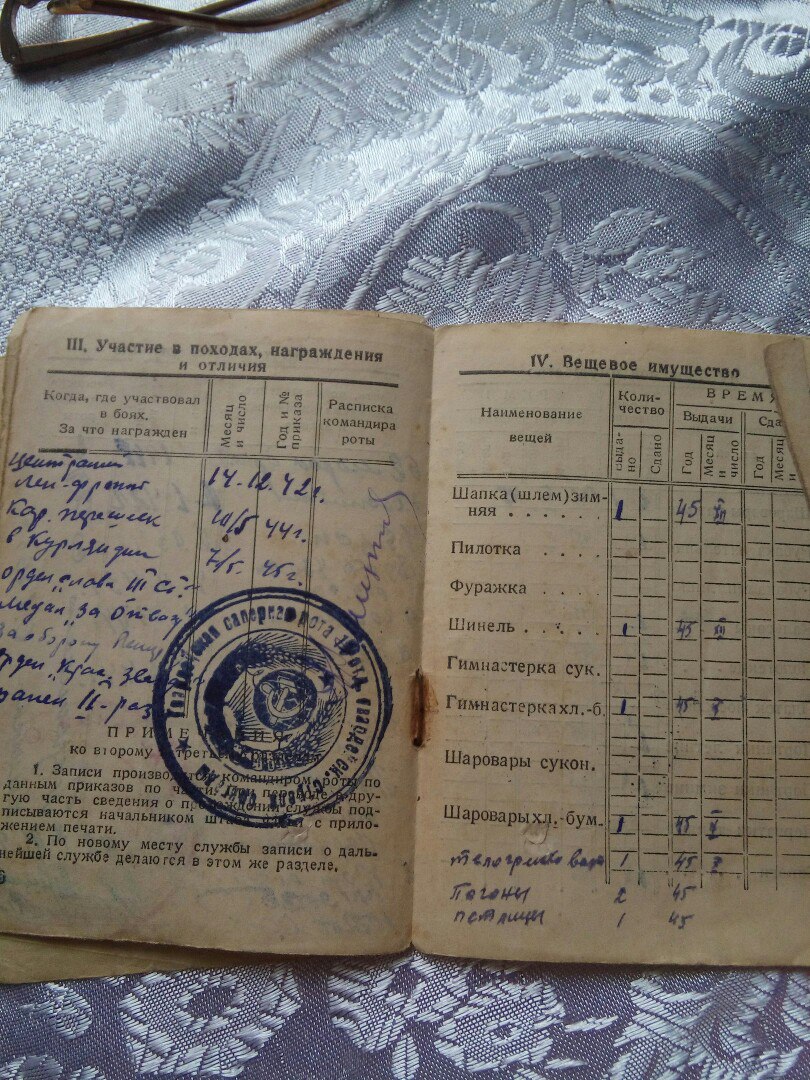 III. Участие в походах, награждения
и отличия
Когда, где участвовал
в боях.
За что награжден
Месяц
и число
Год и №
приказа
Расписка
командира
роты
Лен. фронт 14. 12. 42г.
Кар. перешеек 10/5 44г.
в Курляндии 7/5. 45г.
орден „слава III Ст."
медал „За Отвагу"
За оборону
орден „Крас. Звез
ранен II-раз
ПРИМЕ ИЯ
ко второму третьему
1. Записи производятся командиром роты по
данным приказов по части. При переводе в дру-
гую часть сведения о прохождении службы под-
писываются начальником штаба с прило-
жением печати.
2. По новому месту службы записи о даль-
нейшей службе делаются в этом же разделе.
6
Гвардейская саперная рота гвард. стрелк.
IV. Вещевое имущество
Наименование
вещей
Коли-
чество
Выда-
но
Сдано
ВРЕМЯ
Выдачи
Сда
Год
Месяц
и
число
Год
Месяц
и
Шапка (шлем) зим-
няя . . . . . . 1 45
Пилотка . . . .
Фуражка . . . .
Шинель . . . . . 1 45
Гимнастерка сук.
Гимнастерка хл.-б. 1 45 X
Шаровары сукон.
Шаровары хл.-бум. 1 45 X
телогрейка 1 45 X
Погоны 2 45
петлицы 1 45